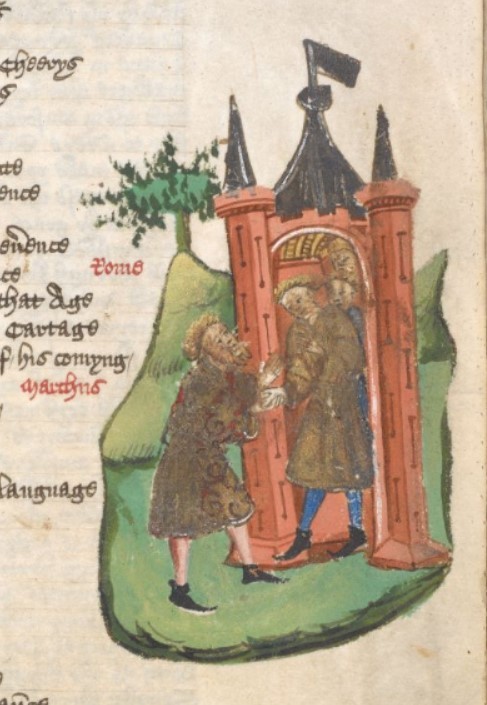 Cheerys
te
ence
evidence
ce
Rome
that Age
Cartage
f his comyng
Marchus
language